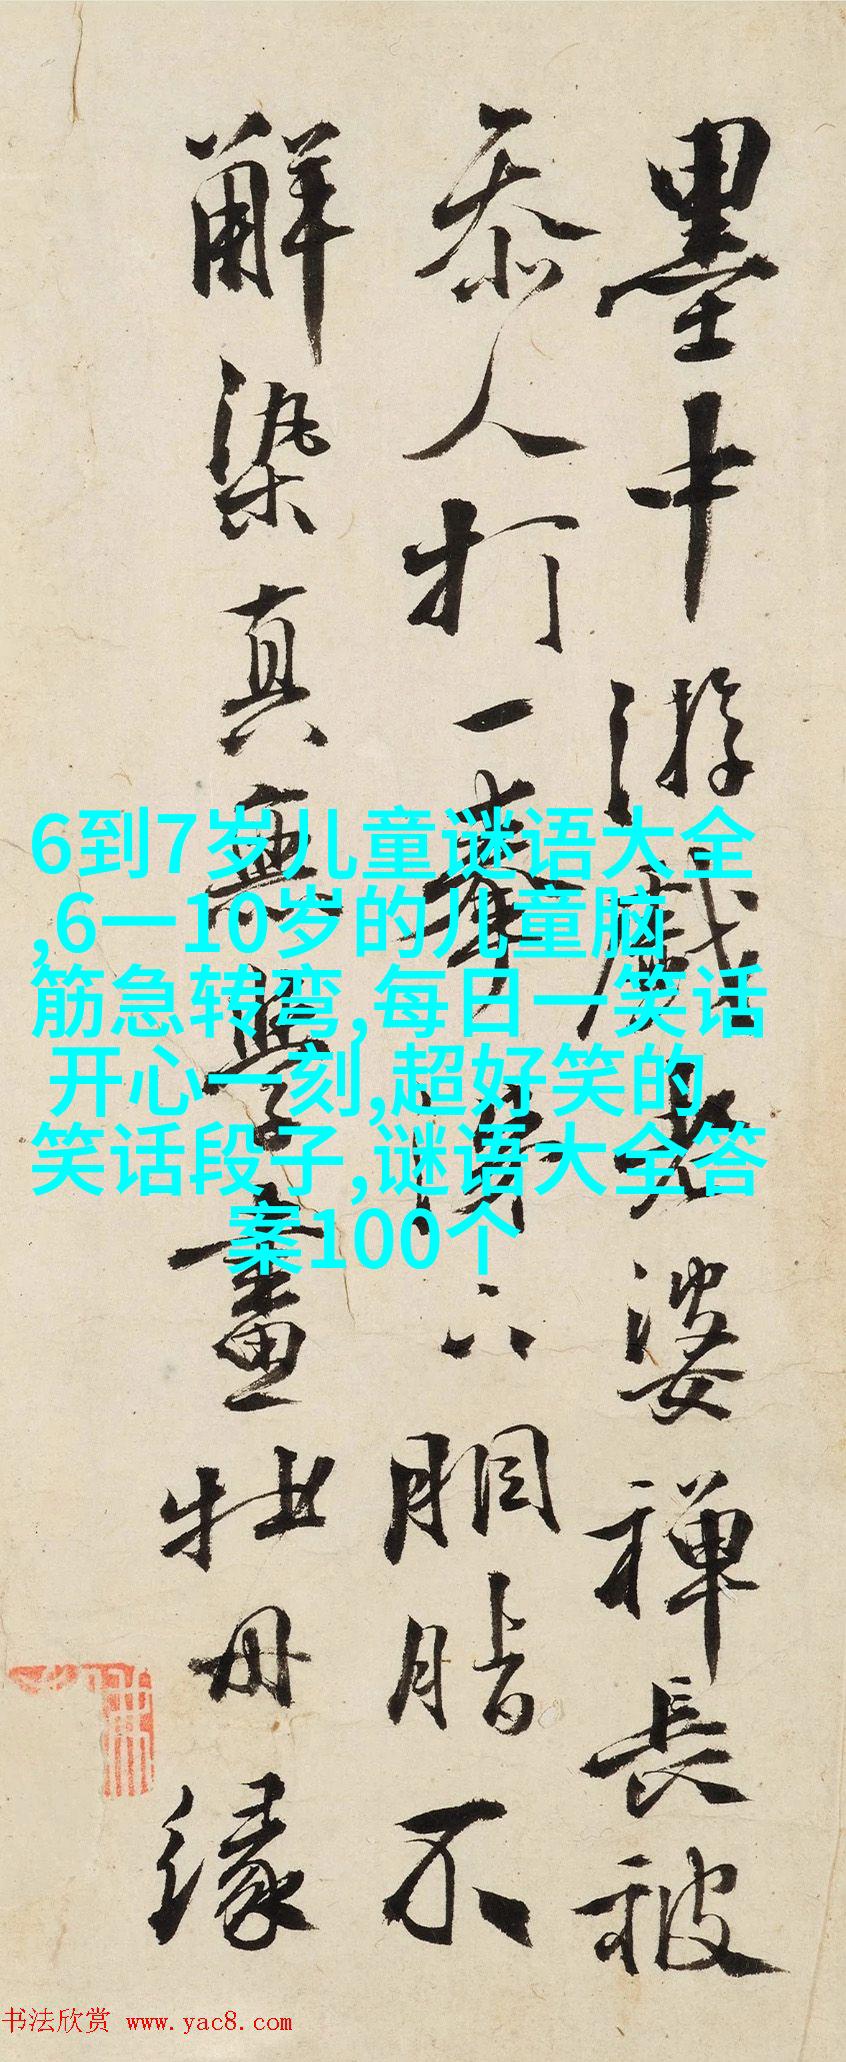 墨中游戲老婆禪長被
忝人打一拳下胭脂不
解染真無學畫牡丹緣
6到7岁儿童谜语大全
,6一10岁的儿童脑
筋急转弯,每日一笑话
开心一刻,超好笑的
笑话段子,谜语大全答
案100个
书法欣赏 www.yac8.com